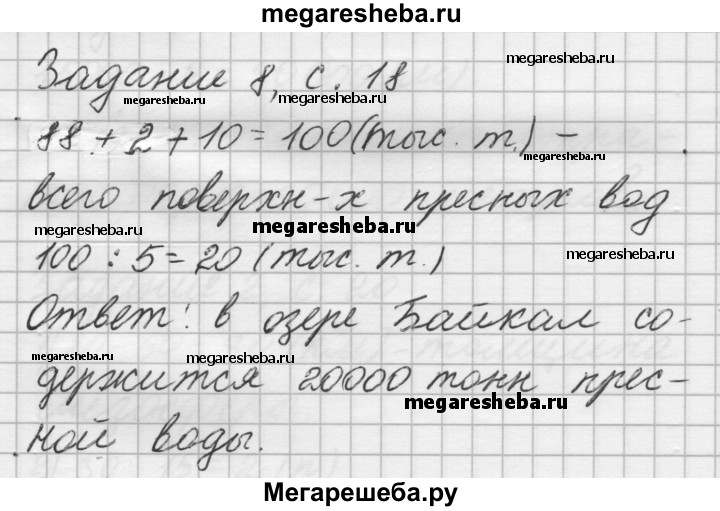 megaresheba.ru
megaresheba.ru
Задание 8, с. 18
megaresheba.ru
megaresheba.ru
88 + 2 + 10 = 100 (тыс. т.) -
megaresheba.ru
всего поверхн-х пресных вод
megaresheba.ru
megaresheba.ru
100 : 5 = 20 (тыс. т.)
megaresheba.ru
Ответ: в озере Байкал со-
megaresheba.ru
megaresheba.ru
держится 20000 тонн прес-
megaresheba.ru
ной воды.
Мегарешеба.ру